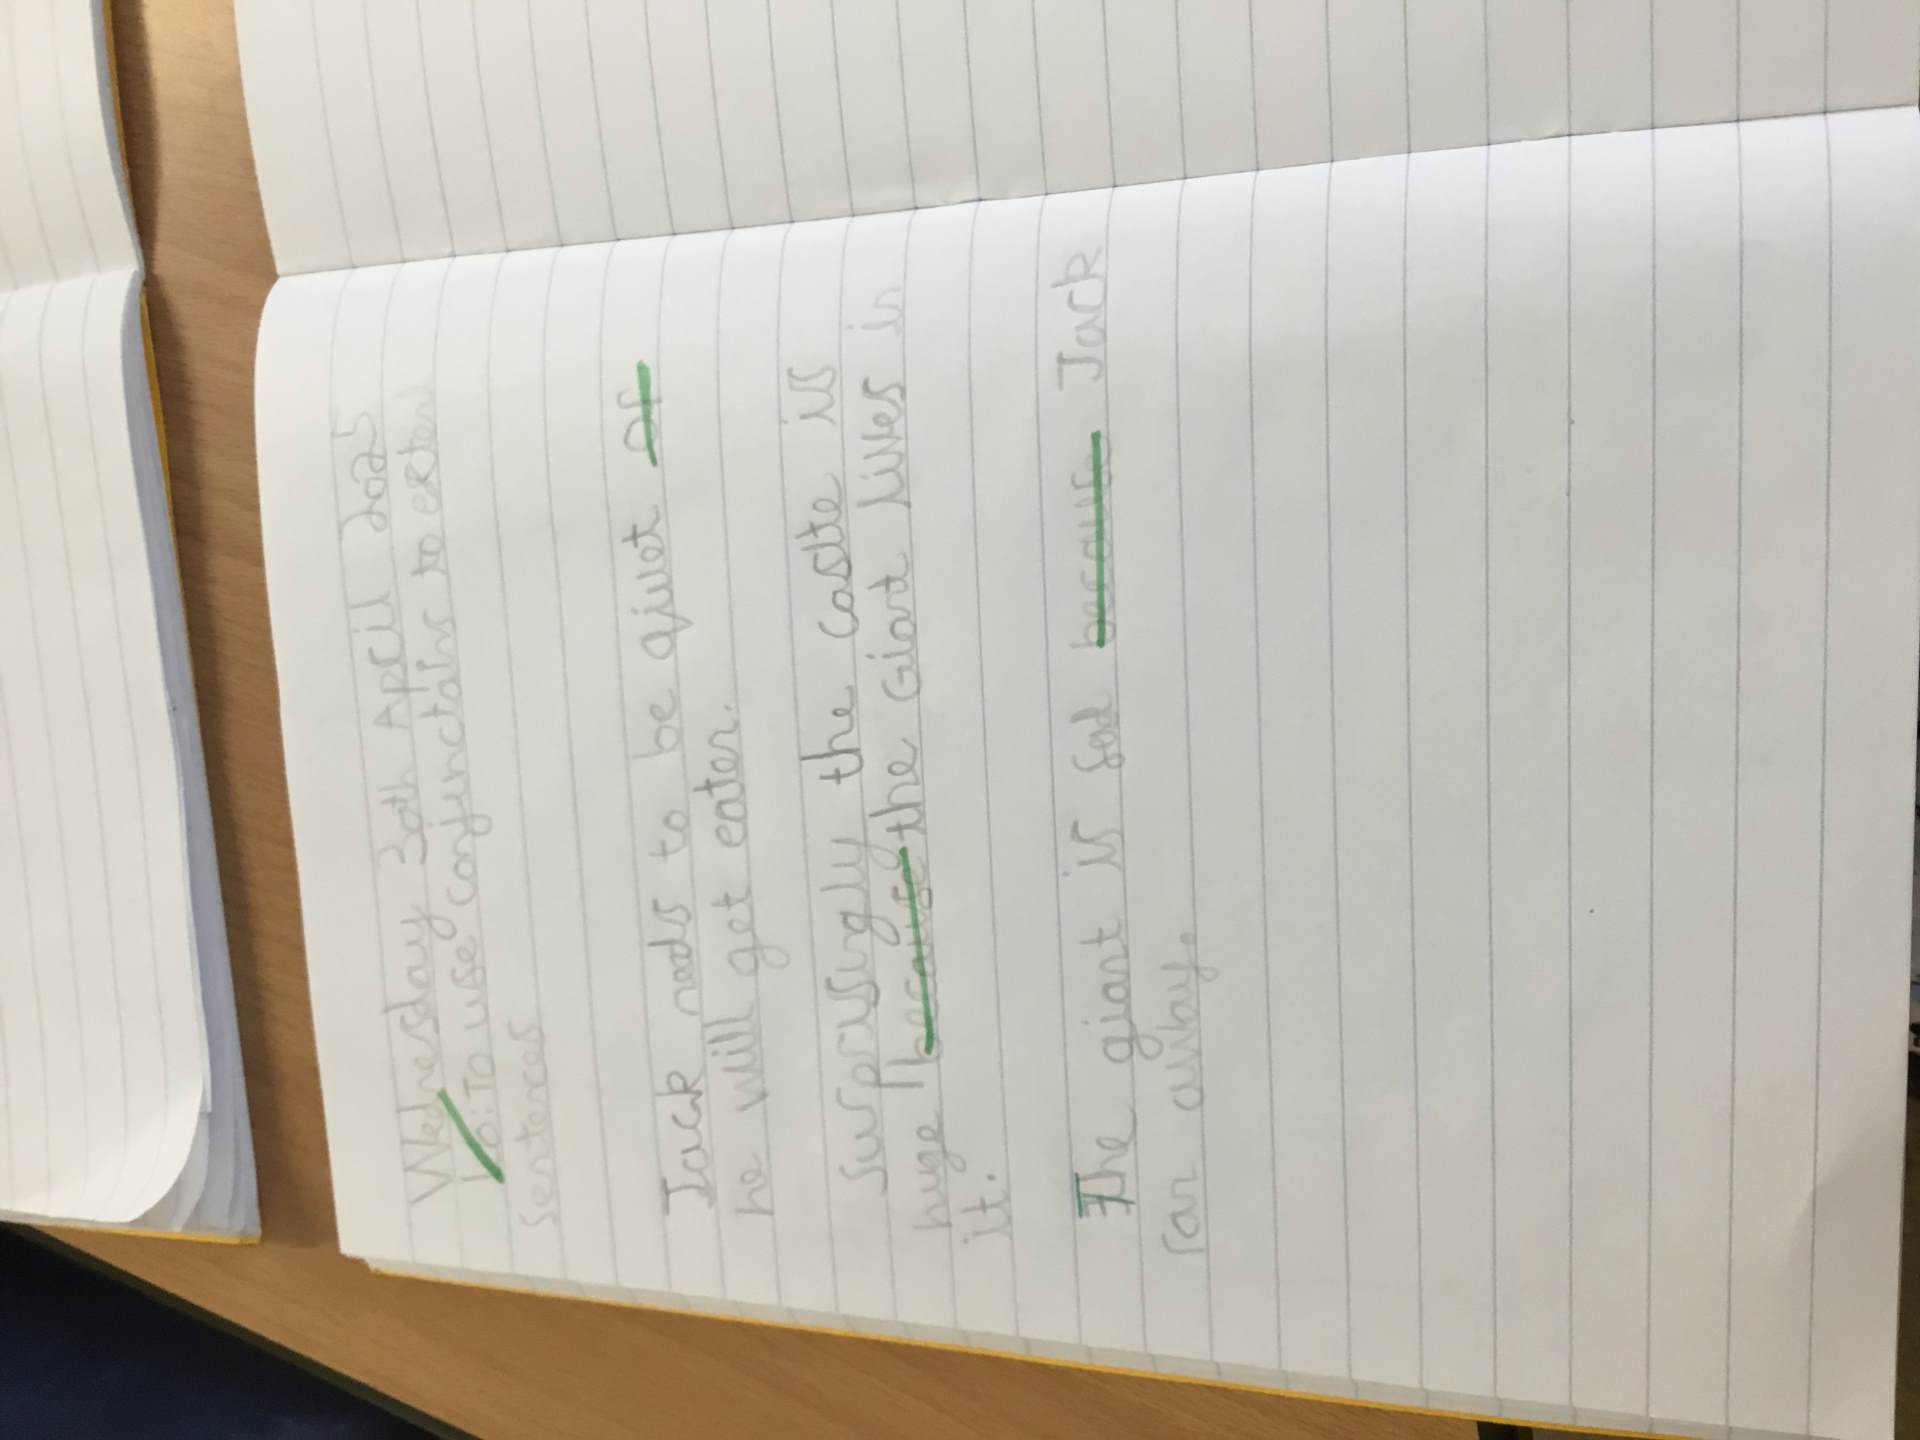 Wednesday 30th April 2025
Lo: To use conjunctains to exten
sentences
Jack needs to be qiuet or
he will get eaten.
Surprisingly the castle is
huge because the Giant lives in
it.
The giant is sad because Jack
ran away.